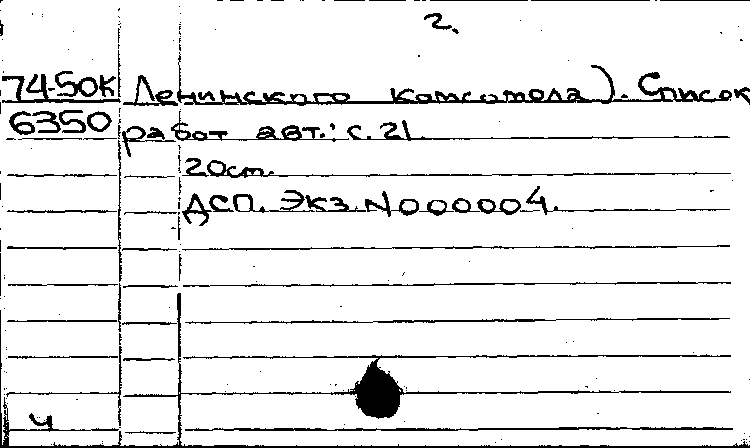 2.
74-50К Ленинского комсомола). Список
6350 работ авт.: с. 21.
20см.
ДСП. Экз. N000004.
ч